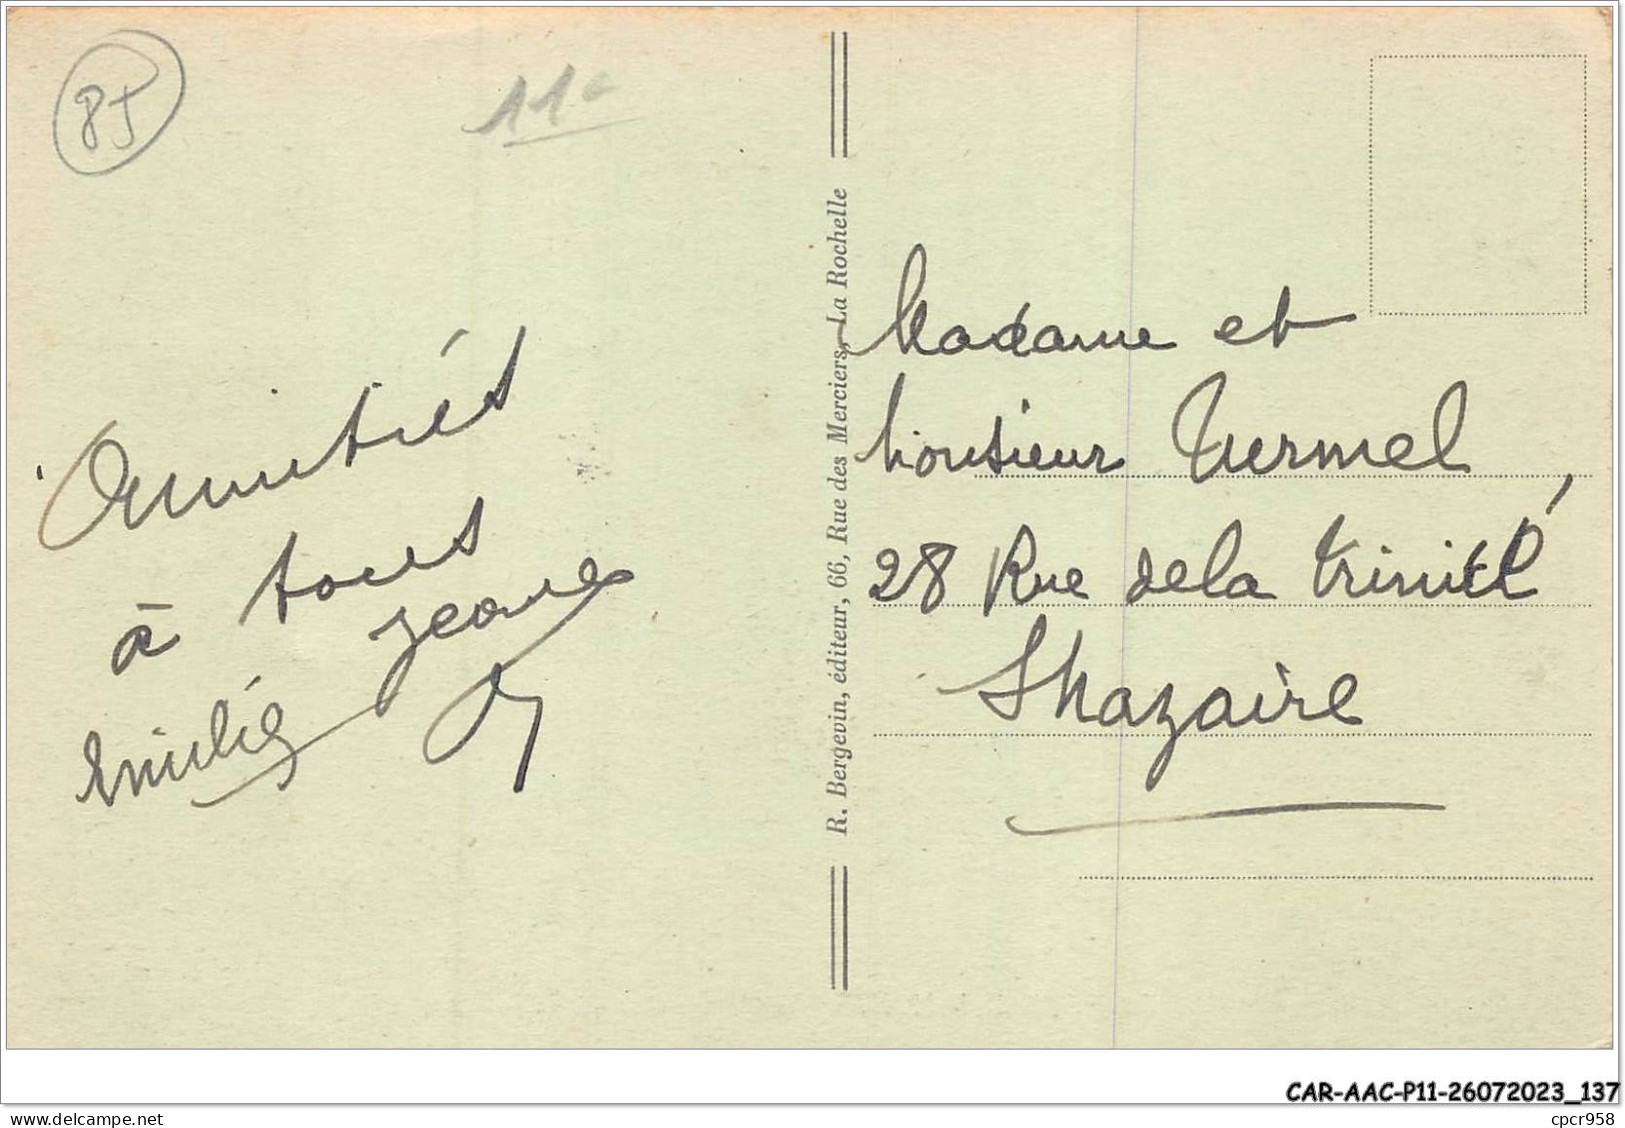 85
11
Amitiés
à tous
Jeanne
Emilie
R. Bergevin, éditeur, 66, Rue des Merciers, La Rochelle
Madame et
Monsieur Turmel
28 Rue de la Trinité
St Nazaire
CAR-AAC-P11-26072023_137
delcampe.net
cpcr958